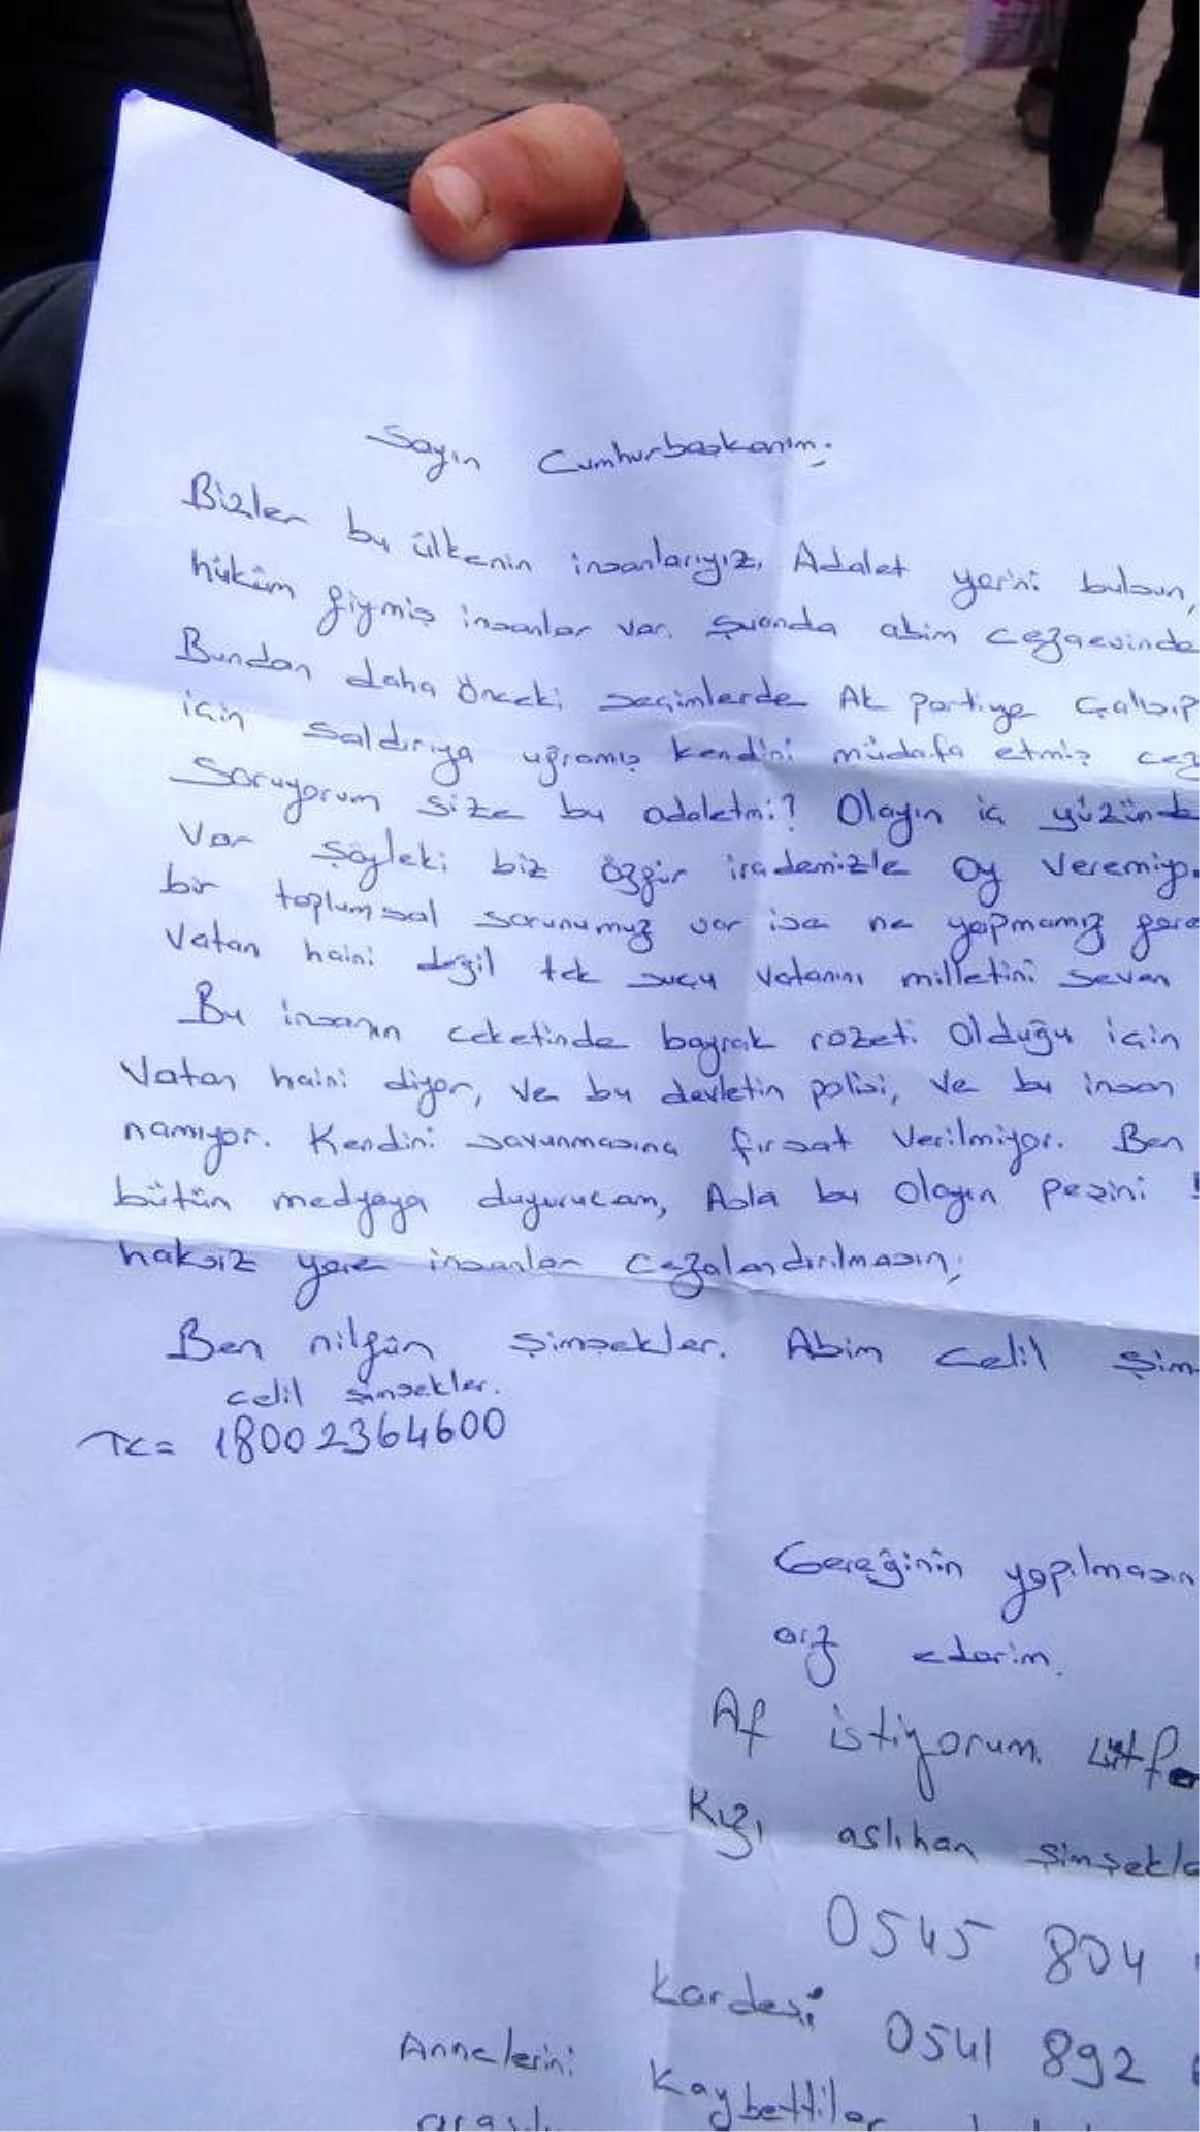 Sayın Cumhurbaşkanım;
Bizler bu ülkenin insanlarıyız. Adalet yerini bulsun,
hüküm giymiş insanlar var. Şuanda abim cezaevinde
Bundan daha önceki seçimlerde Ak partiye çalışıp
için saldırıya uğramış kendini müdafa etmiş cez
Soruyorum size bu adaletmi? Olayın iç yüzünde
var şöyleki biz özgür irademizle oy veremiyo
bir toplumsal sorunumuz var ise ne yapmamız gere
Vatan haini değil tek suçu vatanını milletini seven
Bu insanın ceketinde bayrak rozeti olduğu için
Vatan haini diyor, ve bu devletin polisi, ve bu insan
namıyor. Kendini savunmasına fırsat verilmiyor. Ben
bütün medyaya duyurucam, Asla bu olayın peşini
haksız yere insanlar cezalandırılmasın;
Ben nilgün şimşekler. Abim Celil şim
celil şimşekler.
TC= 18002364600
Gereğinin yapılmasın
arz ederim.
Af istiyorum. Lütfe
Kızı aslıhan şimşekle
0545 804
kardeşi 0541 892
Annelerini kaybettiler